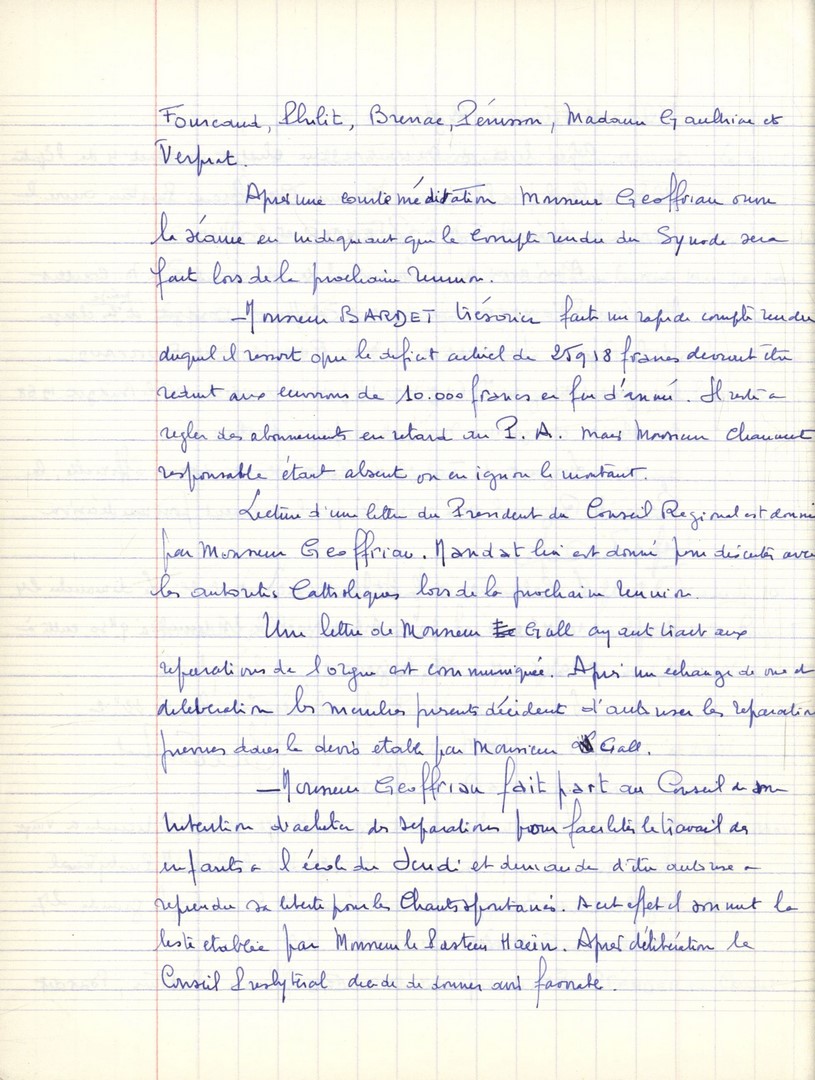 Fourcaud, Philit, Brenac, Pénisson, Madame Gaulhiac et
Verprat.
Après une courte méditation Monsieur Geoffriau ouvre
la séance en indiquant que le compte rendu du Synode sera
fait lors de la prochaine reunion.
Monsieur BARDET trésorier fait un rapide compte rendu
duquel il ressort que le deficit actuel de 25918 francs devrait être
reduit aux environs de 10.000 francs en fin d'année. Il reste a
regler des abonnements en retard au P.A. mais Monsieur
responsable étant absent on en ignore le montant.
Lecture d'une lettre du President du Conseil Regional est donnée
par Monsieur Geoffriau. Mandat lui est donné pour discuter avec
les autorités Catholiques lors de la prochaine reunion.
Une lettre de Monsieur Gall ayant trait aux
reparations de l'orgue est communiquée. Après un echange de vue et
deliberation les membres presents décident d'autoriser les reparations
prevues dans le devis etabli par Monsieur Gall.
Monsieur Geoffriau fait part au Conseil de son
intention d'acheter des separations pour faciliter le travail des
enfants a l'école du Jeudi et demande d'être autorise a
reprendre sa liberté pour les Chants spontanés. A cet effet il soumet la
liste etablie par Monsieur le Pasteur Haein. Après délibération le
Conseil Presbytéral decide de donner avis favorable.